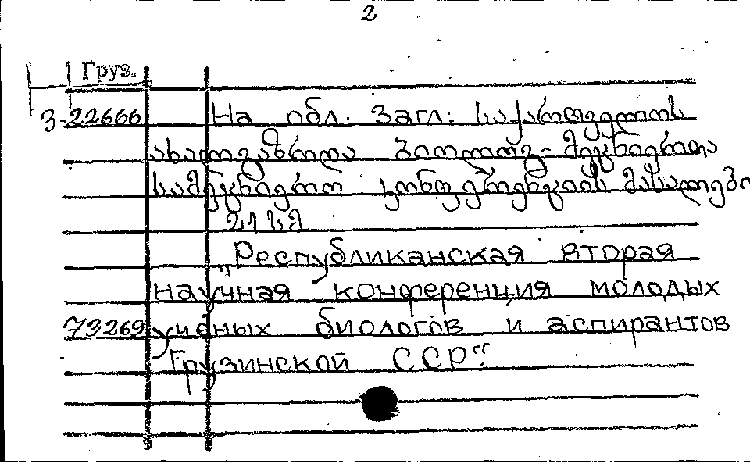 2
Груз.
3-22666 На обл. загл.: საქართველოს
ახალგაზრდა ბიოლოგ-მეცნიერთა
სამეცნიერო კონფერენციის მასალები
„Республиканская вторая
научная конференция молодых
73269 учёных биологов и аспирантов
Грузинской ССР“.